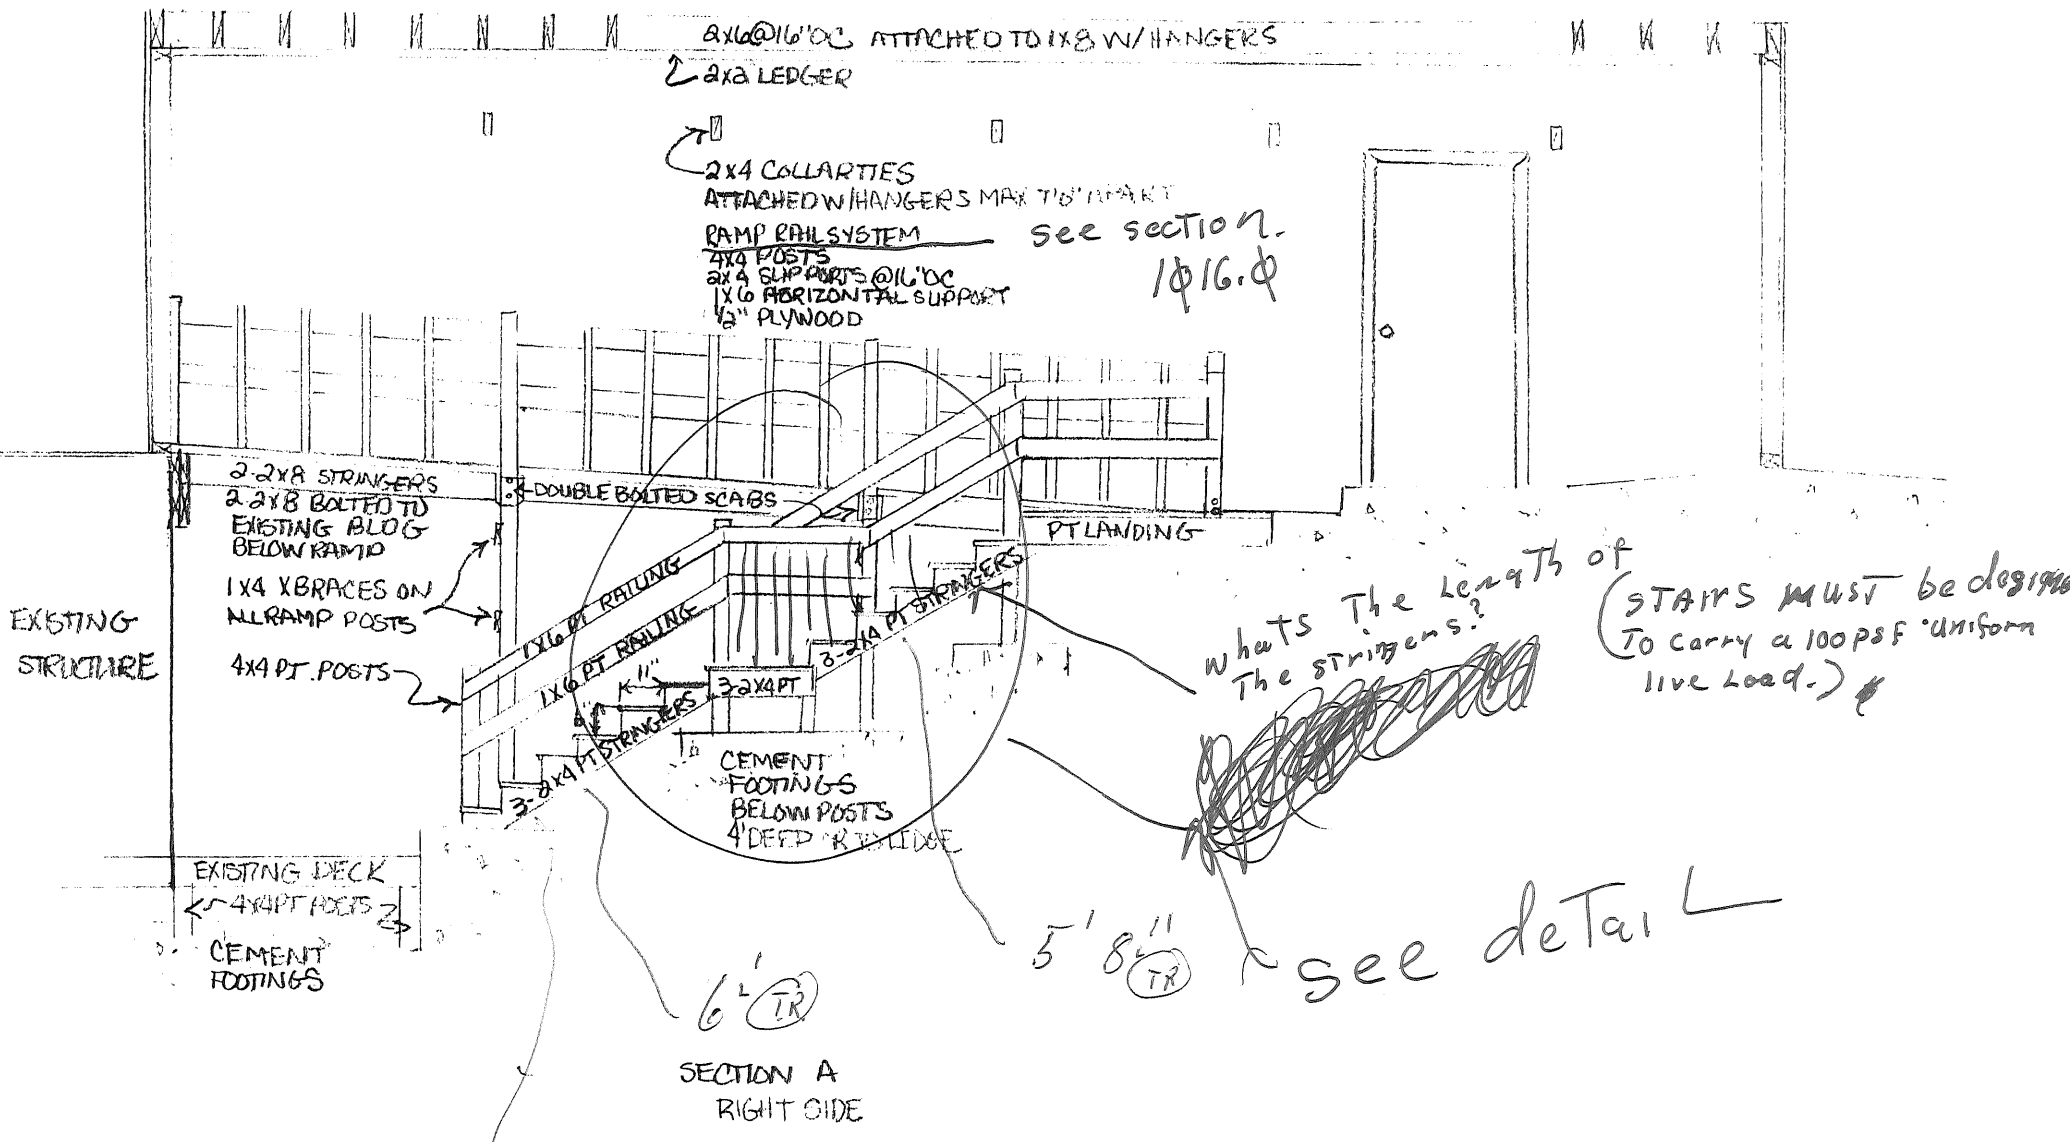 2X6@16"OC ATTACHED TO 1X8 W/HANGERS
2X2 LEDGER
2X4 COLLARTIES
ATTACHED W/HANGERS MAX APART
RAMP RAIL SYSTEM
4X4 POSTS
2X4 SUPPORTS @16"OC
1X6 HORIZONTAL SUPPORT
1/2" PLYWOOD
see section.
1016.0
2-2X8 STRINGERS
2-2X8 BOLTED TO
EXISTING BLDG
BELOW RAMP
DOUBLE BOLTED SCABS
PT LANDING
1X4 XBRACES ON
ALL RAMP POSTS
EXISTING
STRUCTURE
4X4 PT. POSTS
1X6 PT RAILING
1X6 PT RAILING
11"
3-2X4 PT STRINGERS
3-2X4PT
3-2X4 PT STRINGERS
whats The Length of
The stringers?
(STAIRS MUST be designe
To carry a 100 psf uniform
live Load.)
CEMENT
FOOTINGS
BELOW POSTS
4' DEEP OR TO LEDGE
EXISTING DECK
4X4PT POSTS
CEMENT
FOOTINGS
6' TR
5' 8" TR
see detail
SECTION A
RIGHT SIDE